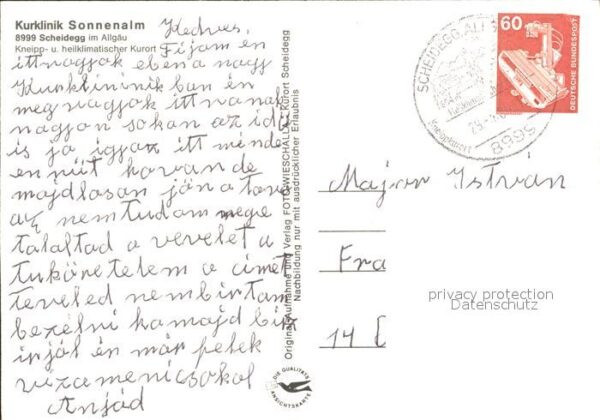 Kurklinik Sonnenalm
8999 Scheidegg im Allgäu
Kneipp- u. heilklimatischer Kurort
Kedves
Fijam én
itt vagyok eben a nagy
ban én
meg vagyok itt vanak
nagyon sokan az idö
is jo igyaz itt minden
en nüt ko van de
majd lasan jön a tava
az nem tudom mege
talaltad a vevelet a
tukönetelem a cimet
teveled nem birtam
bezélni ha majd bi
irjál én már petek
viza meni csokol
Anjád
Originalaufnahme und Verlag FOTO-WIESCHALLA, Kurort Scheidegg
Nachbildung nur mit ausdrücklicher Erlaubnis
DIE QUALITÄTS
ANSICHTSKARTE
SCHEIDEGG, ALLG
Kneippkurort
8999
60
DEUTSCHE BUNDESPOST
Major István
Fra
privacy protection
Datenschutz
14